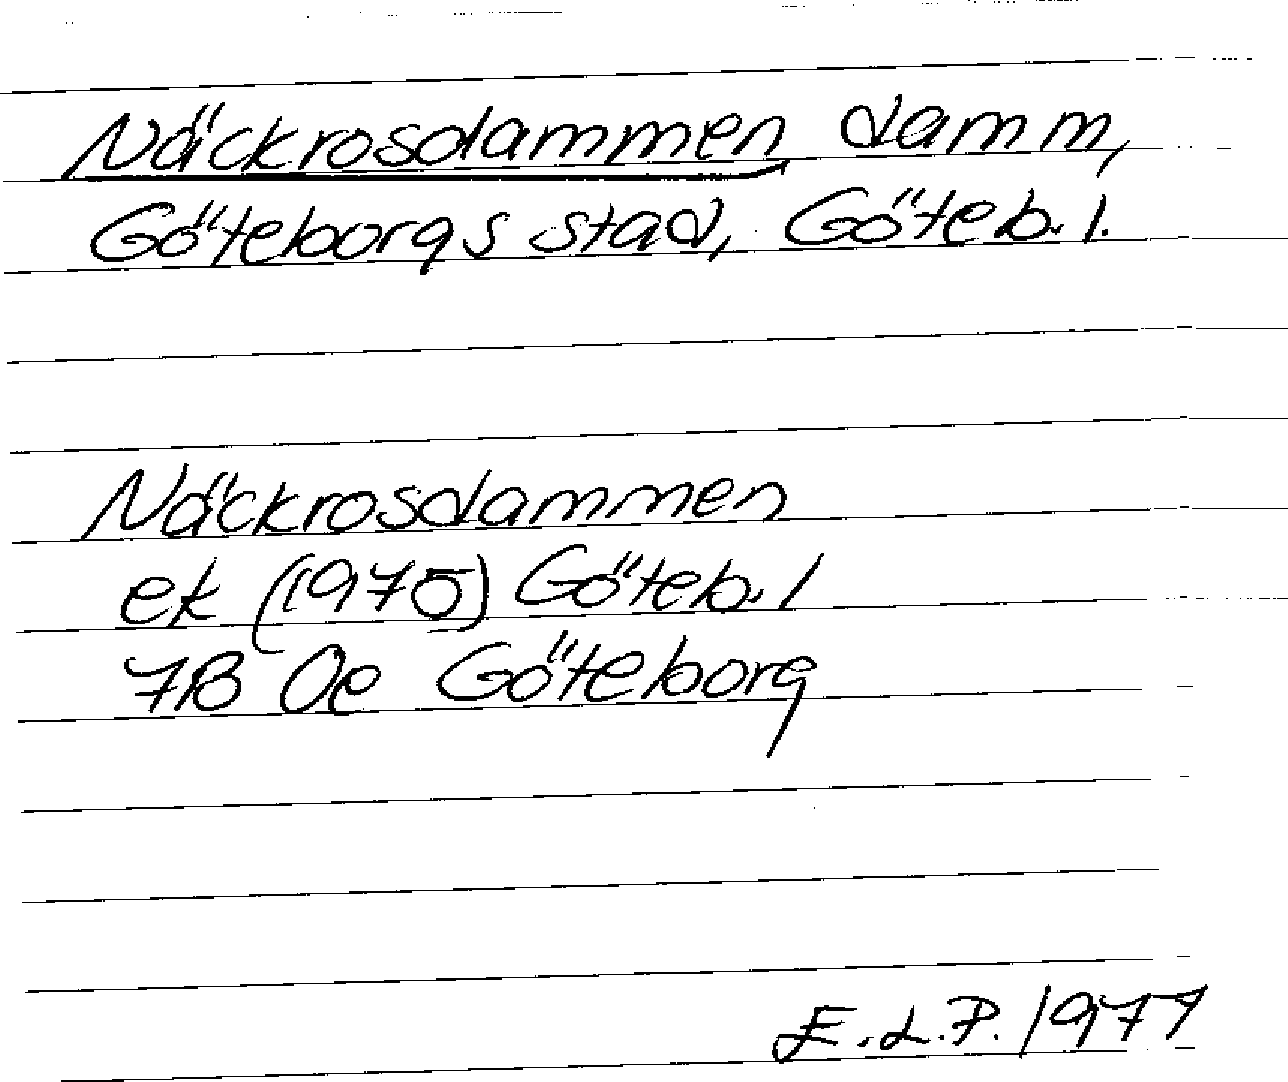 Näckrosdammen damm,
Göteborgs stad, Göteb. l.
Näckrosdammen
ek (1975) Göteb. l
7B 0e Göteborg
E.L.P. 1977